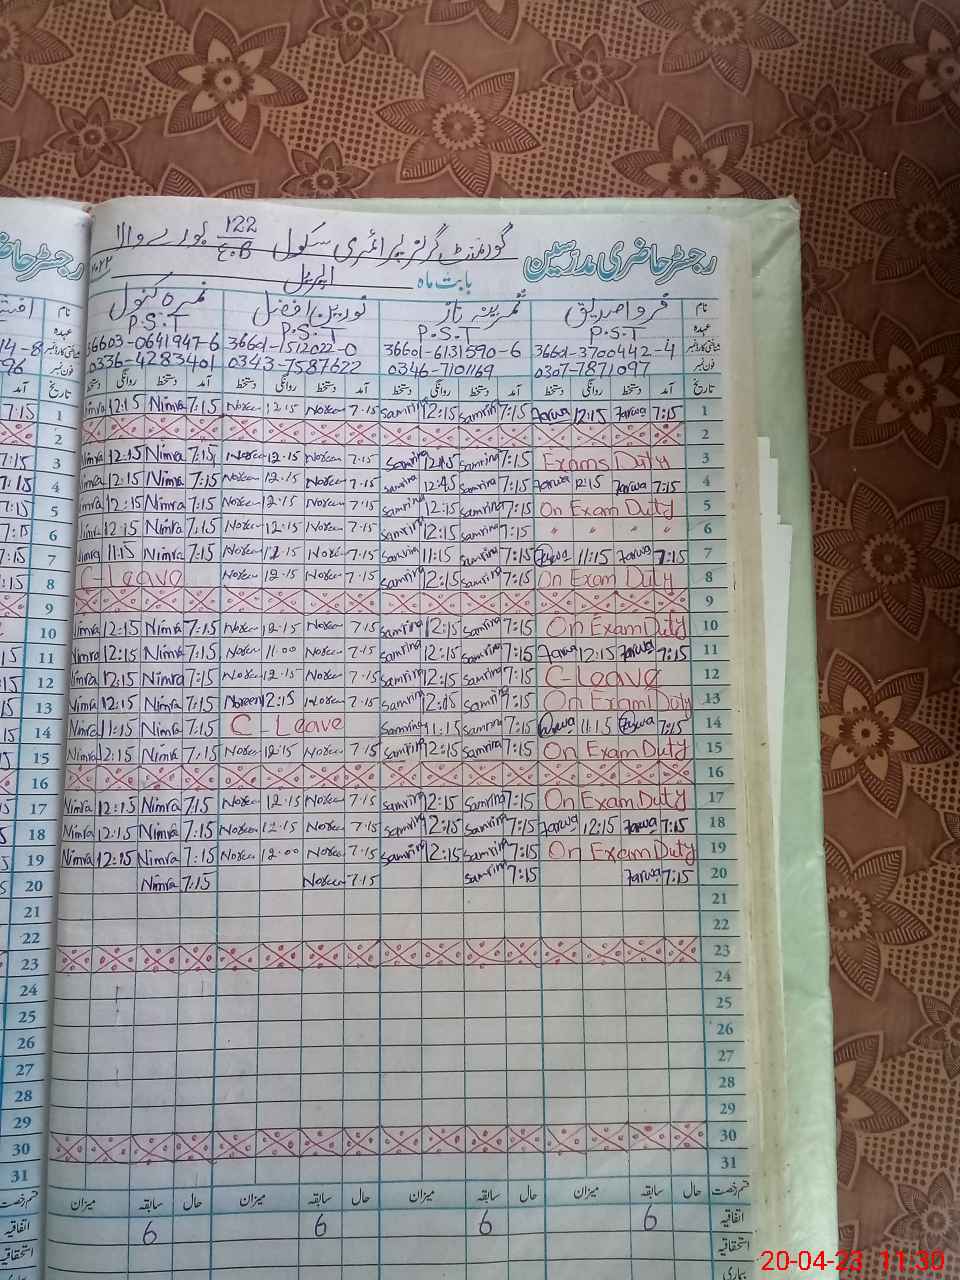 گورنمنٹ گرلز پرائمری سکول 122 E.B بورے والا
رجسٹر حاضری مدرسین
بابت ماہ اپریل ۲۰۲۳
نام فروا صدیق ثمرینہ ناز نورین افضل نمرہ کنول
عہدہ P.S.T P.S.T P.S.T P.S.T
36603-0641947-6 36601-1512022-0 36601-6131590-6 36601-3700442-4
فون نمبر 0336-4283401 0343-7587622 0346-7101169 0307-7871097
تاریخ آمد دستخط روانگی دستخط آمد دستخط روانگی دستخط آمد دستخط روانگی دستخط آمد دستخط روانگی دستخط
7:15 1 Nimra 12:15 Nimra 7:15 Noreen 12:15 Noreen 7:15 Samrina 12:15 Samrina 7:15 Farwa 12:15 Farwa 7:15 1
2 2
7:15 3 Nimra 12:15 Nimra 7:15 Noreen 12:15 Noreen 7:15 Samrina 12:15 Samrina 7:15 Exams Duty 3
7:15 4 Nimra 12:15 Nimra 7:15 Noreen 12:15 Noreen 7:15 Samrina 12:45 Samrina 7:15 Farwa 12:15 Farwa 7:15 4
7:15 5 Nimra 12:15 Nimra 7:15 Noreen 12:15 Noreen 7:15 Samrina 12:15 Samrina 7:15 On Exam Duty 5
7:15 6 Nimra 12:15 Nimra 7:15 Noreen 12:15 Noreen 7:15 Samrina 12:15 Samrina 7:15 " " " " 6
7:15 7 Nimra 11:15 Nimra 7:15 Noreen 12:15 Noreen 7:15 Samrina 11:15 Samrina 7:15 Farwa 11:15 Farwa 7:15 7
:15 8 C-Leave Noreen 12:15 Noreen 7:15 Samrina 12:15 Samrina 7:15 On Exam Duty 8
9 9
10 Nimra 12:15 Nimra 7:15 Noreen 12:15 Noreen 7:15 Samrina 12:15 Samrina 7:15 On Exam Duty 10
15 11 Nimra 12:15 Nimra 7:15 Noreen 11:00 Noreen 7:15 Samrina 12:15 Samrina 7:15 Farwa 12:15 Farwa 7:15 11
15 12 Nimra 12:15 Nimra 7:15 Noreen 12:15 Noreen 7:15 Samrina 12:15 Samrina 7:15 C-Leave 12
15 13 Nimra 12:15 Nimra 7:15 Noreen 12:15 Noreen 7:15 Samrina Samrina 7:15 On Exam Duty 13
15 14 Nimra 11:15 Nimra 7:15 C-Leave Samrina 11:15 Samrina 7:15 Farwa 11:15 Farwa 7:15 14
15 15 Nimra 12:15 Nimra 7:15 Noreen 12:15 Noreen 7:15 Samrina 12:15 Samrina 7:15 On Exam Duty 15
16 16
17 Nimra 12:15 Nimra 7:15 Noreen 12:15 Noreen 7:15 Samrina 12:15 Samrina 7:15 On Exam Duty 17
18 Nimra 12:15 Nimra 7:15 Noreen 12:15 Noreen 7:15 Samrina 12:15 Samrina 7:15 Farwa 12:15 Farwa 7:15 18
19 Nimra 12:15 Nimra 7:15 Noreen 12:00 Noreen 7:15 Samrina 12:15 Samrina 7:15 On Exam Duty 19
20 Nimra 7:15 Noreen 7:15 Samrina 7:15 Farwa 7:15 20
21 21
22 22
23 23
24 24
25 25
26 26
27 27
28 28
29 29
30 30
31 31
قسم رخصت حال سابقہ میزان حال سابقہ میزان حال سابقہ میزان حال سابقہ میزان قسم رخصت
اتفاقیہ 6 6 6 6 اتفاقیہ
استحقاقیہ استحقاقیہ
بیماری بیماری
20-04-23 11:30